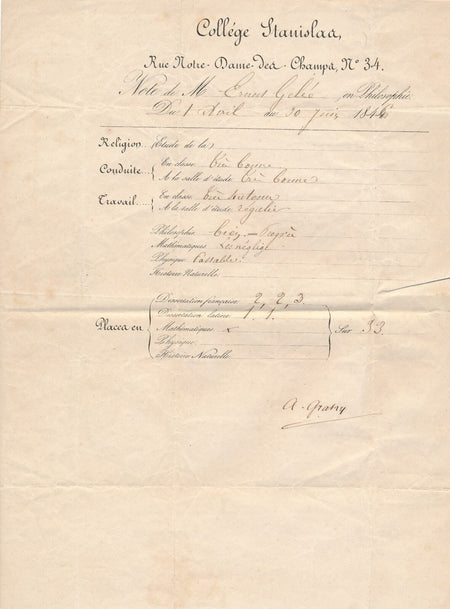 Collége Stanislas,
Rue Notre-Dame-des-Champs, N° 34.
Note de M Ernest Gelée en Philosophie
Du 1 Avril au 30 Juin 1846
Religion (Etude de la)
Conduite En classe très bonne
A la salle d'étude très bonne
Travail En classe très
A la salle d'étude régulier
Philosophie -
Mathématiques négligé
Physique Passable
Histoire Naturelle
Places en
Dissertation française 2, 2, 3.
Dissertation latine 1. 1.
Mathématiques x
Physique
Histoire Naturelle
Sur 33.
A. Gratry